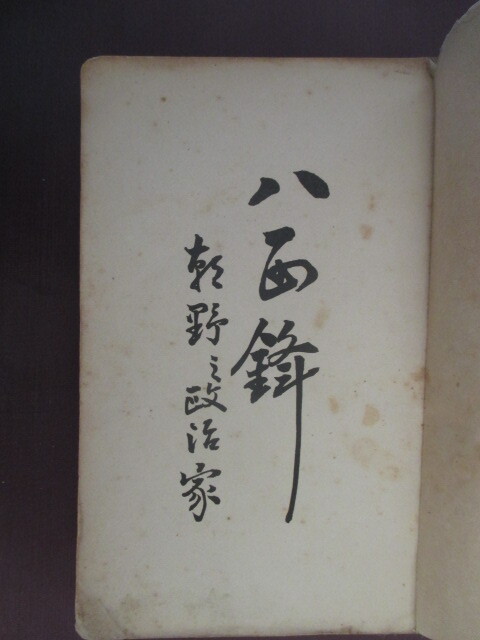 八面鋒
朝野之政治家